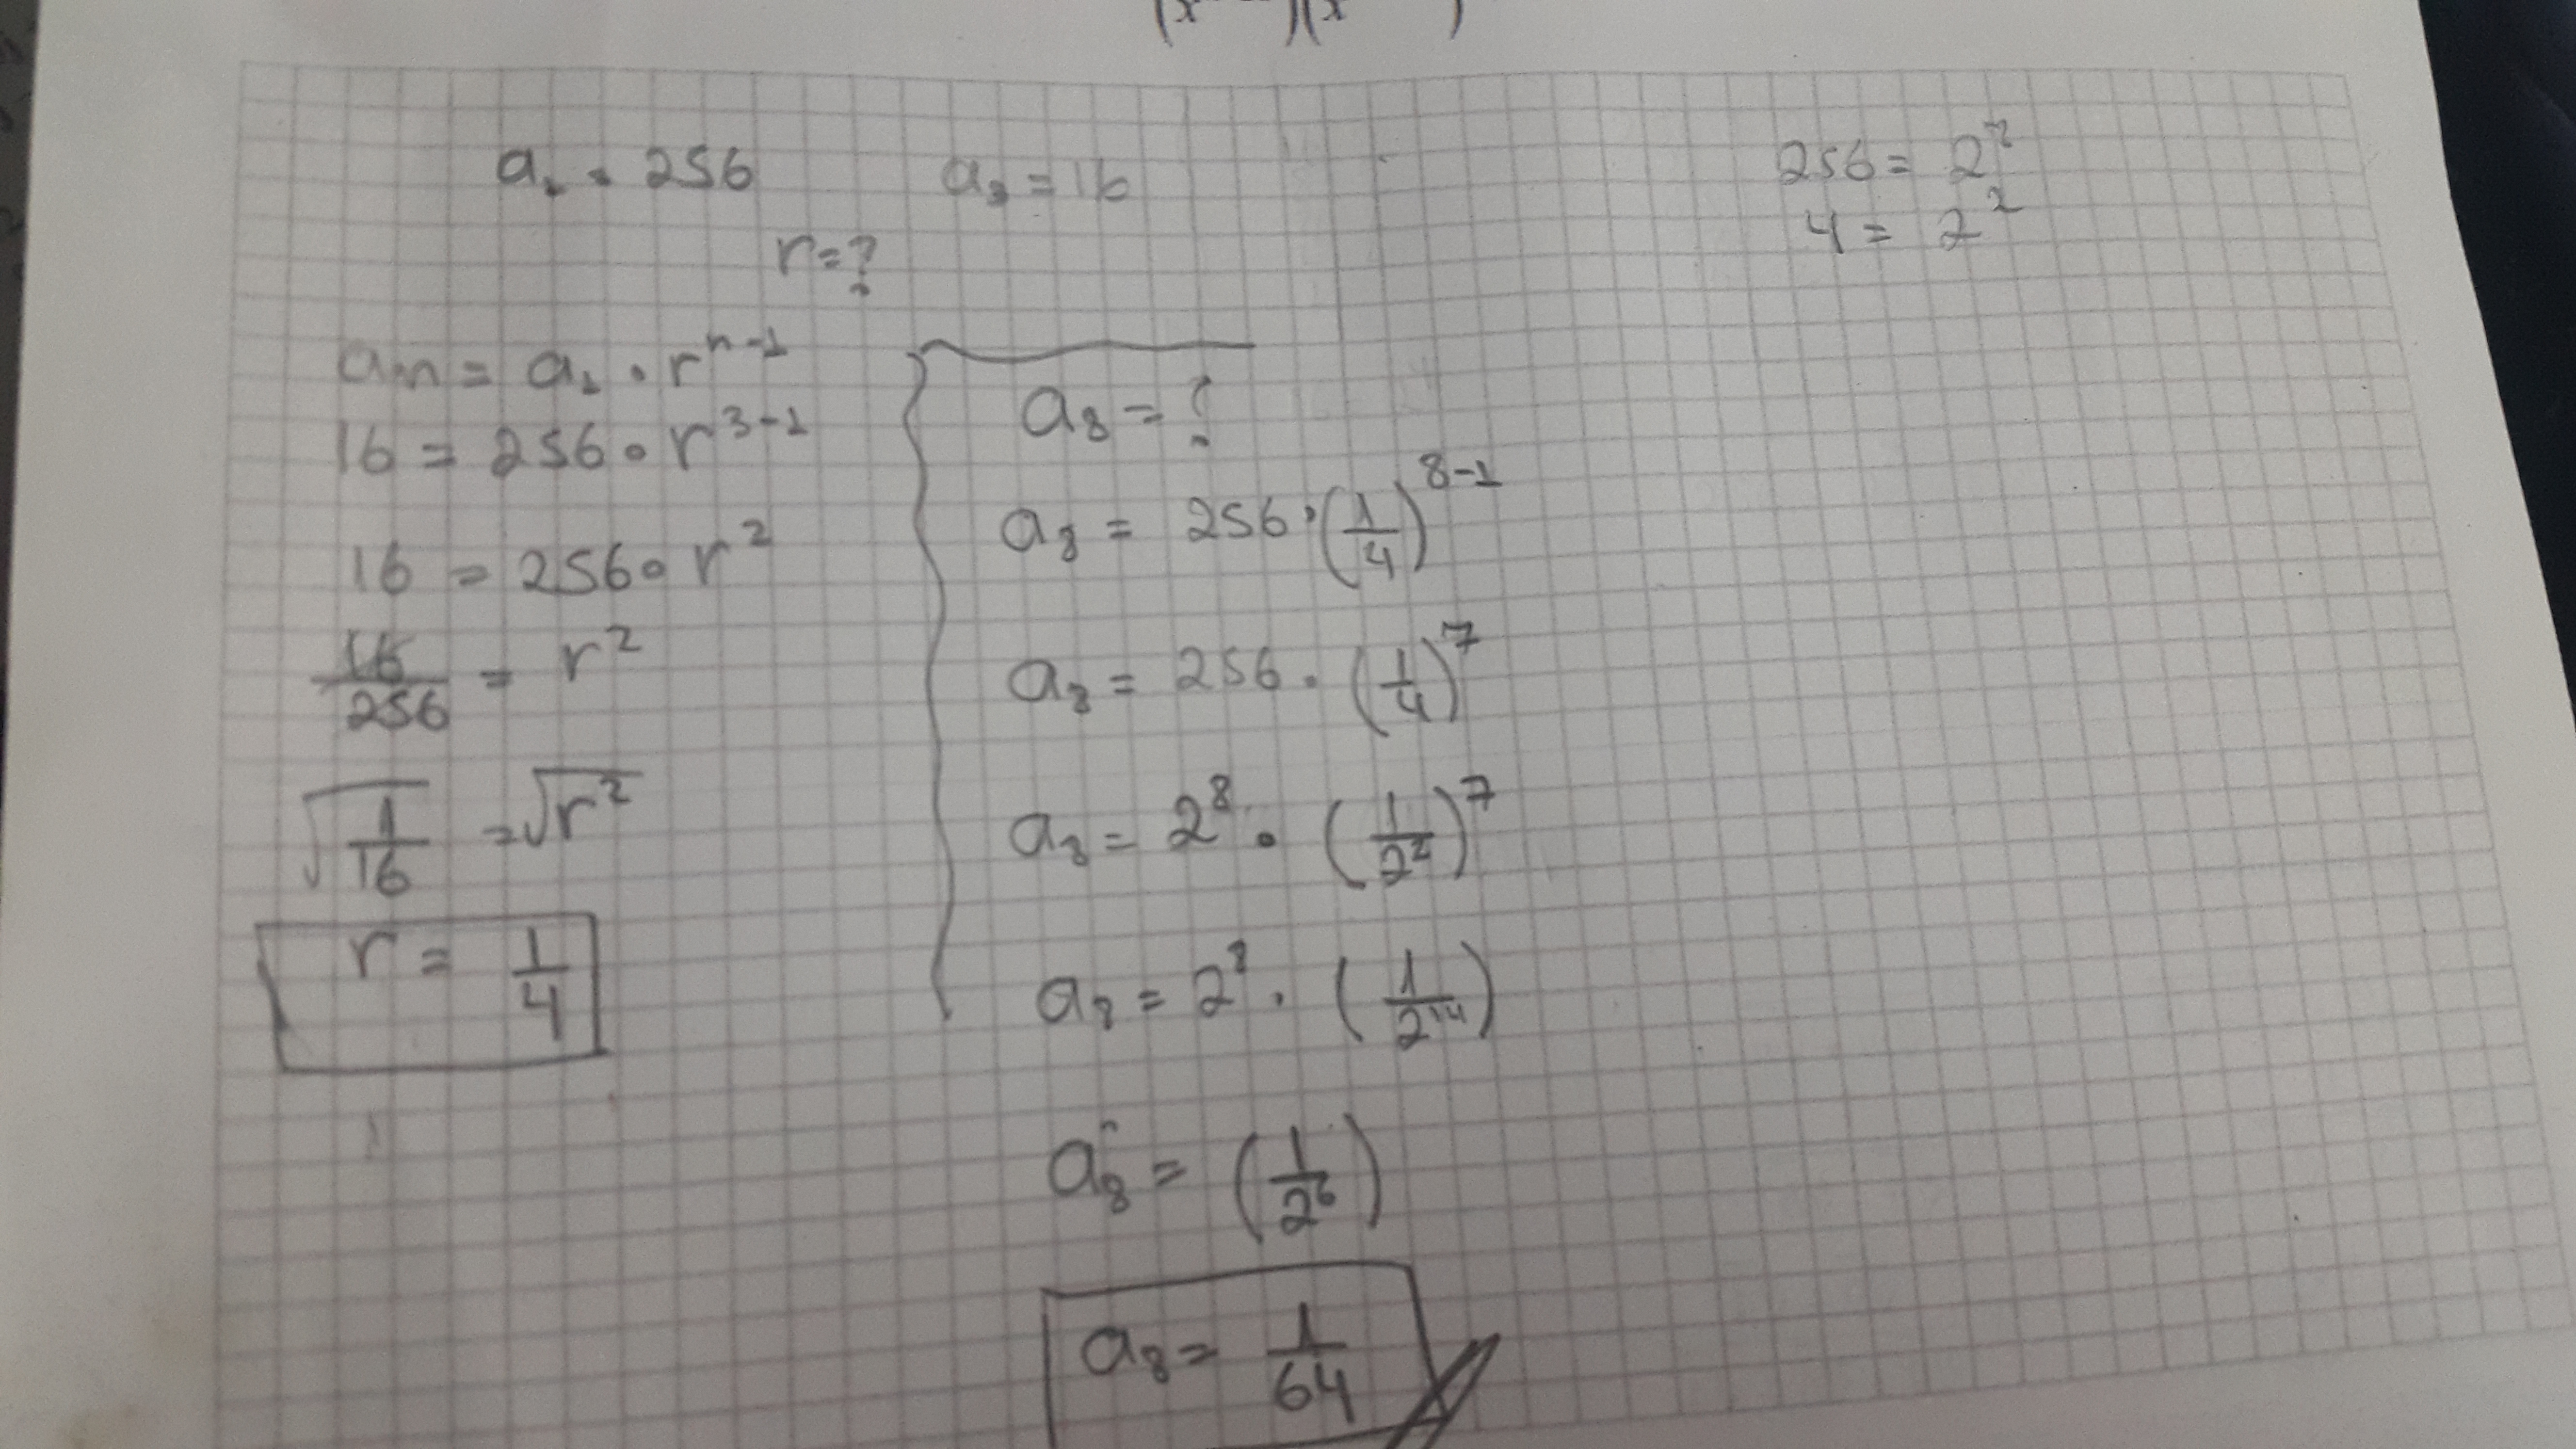 a₁ = 256 a₃ = 16
r = ?
aₙ = a₁ · rⁿ⁻¹
16 = 256 · r³⁻¹
16 = 256 · r²
16/256 = r²
√(1/16) = √r²
r = 1/4
a₈ = ?
a₈ = 256 · (1/4)⁸⁻¹
a₈ = 256 · (1/4)⁷
a₈ = 2⁸ · (1/2²)⁷
a₈ = 2⁸ · (1/2¹⁴)
a₈ = (1/2⁶)
a₈ = 1/64
256 = 2
4 = 2²